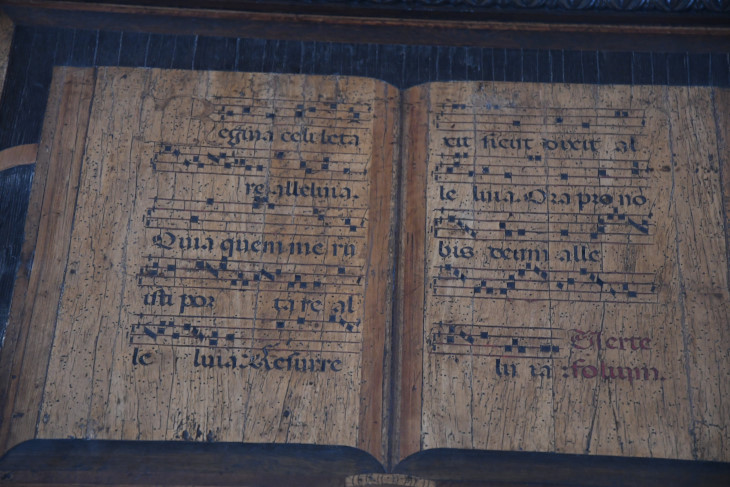 egina celi leta
re alleluia.
Quia quem me ru
isti por ta re al
le luia. Resurre
xit sicut dixit al
le luia. Ora pro no
bis deum alle
lu ia Verte
folium.